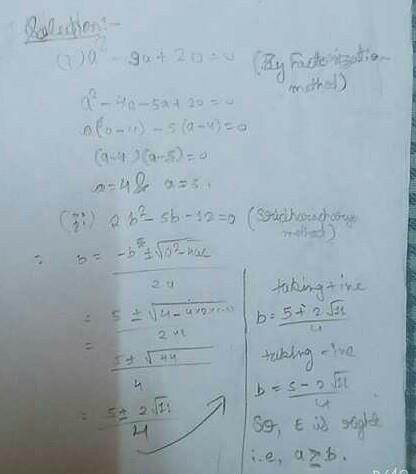 Solution:-
(i) a² - 9a + 20 = 0 (By Factorization method)
a² - 4a - 5a + 20 = 0
a(a-4) - 5(a-4) = 0
(a-4)(a-5) = 0
a = 4 & a = 5.
(ii) 2b² - 5b - 12 = 0 (Sridharacharya method)
∴ b = -b ± √b² - 4ac / 2a
= 5 ± √4 - 4×2×(-12) / 2×2
= 5 ± √44 / 4
= 5 ± 2√11 / 4
taking +ive
b = 5 + 2√11 / 4
taking -ive
b = 5 - 2√11 / 4
So, E is right
i.e, a ≥ b.